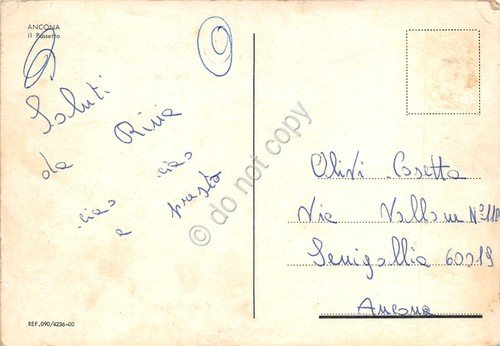 ANCONA
Il Passetto
Saluti
da Rivia
ciao ciao
a presto
Olivi Casetta
Via Vallone N°110
Senigallia 60019
Ancona
REF. 090/4236-00
© do not copy